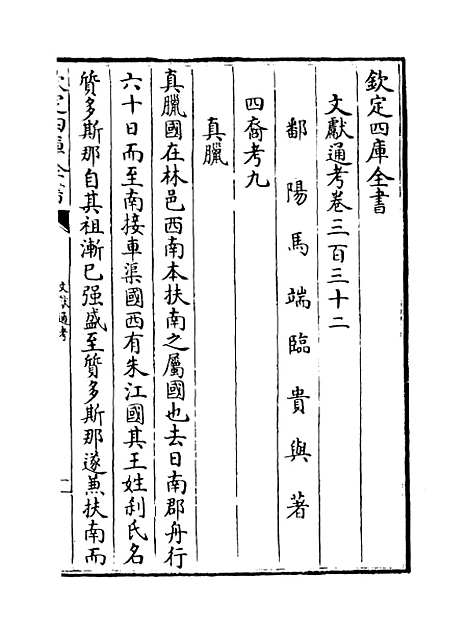 欽定四庫全書
文獻通考卷三百三十二
鄱陽馬端臨貴與著
四裔考九
真臘
真臘國在林邑西南本扶南之屬國也去日南郡舟行
六十日而至南接車渠國西有朱江國其王姓利氏名
質多斯那自其祖漸已强盛至質多斯那遂兼扶南而
欽定四庫全書
文獻通考